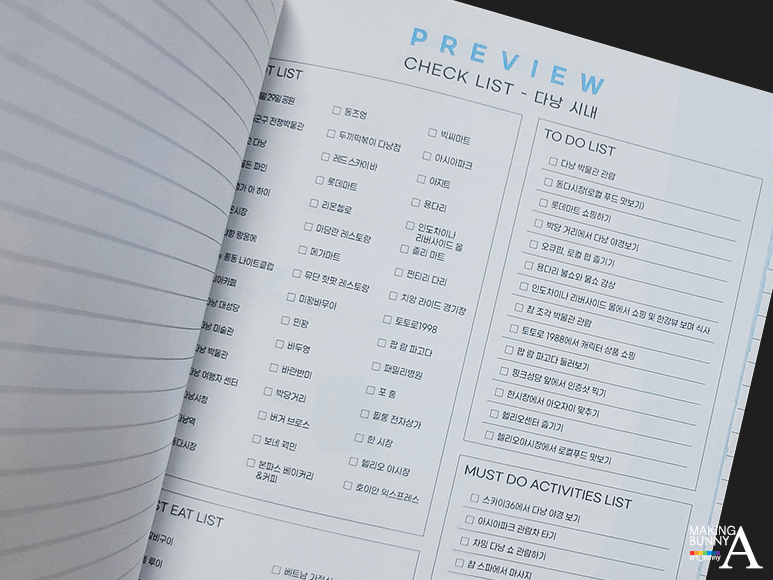 PREVIEW
CHECK LIST - 다낭 시내
T LIST
29일 공원
군구 전쟁박물관
다낭
파인
아 하이
시장
왕웅에
퐁동 나이트클럽
아카페
다낭 대성당
다낭 미술관
다낭 박물관
다낭 여행자 센터
다낭시청
다낭역
동다시장
동즈엉
두끼떡볶이 다낭점
레드스카이바
롯데마트
리몬첼로
마담란 레스토랑
메가마트
뮤단 핫팟 레스토랑
미꽝바무아
민꽝
바두엉
바란반미
박당거리
버거 브로스
보네 꼭민
본파스 베이커리
&커피
빅씨마트
아시아파크
아지트
용다리
인도차이나
리버사이드 몰
졸리 마트
쩐티리 다리
치앙 라이드 경기장
토토로1998
팝 람 파고다
패밀리병원
포 홍
필롱 전자상가
한 시장
헬리오 야시장
호이안 익스프레스
TO DO LIST
다낭 박물관 관람
동다시장(로컬 푸드 맛보기)
롯데마트 쇼핑하기
박당 거리에서 다낭 야경보기
오큐펍, 로컬 펍 즐기기
용다리 불쇼와 물쇼 감상
인도차이나 리버사이드 몰에서 쇼핑 및 한강뷰 보며 식사
참 조각 박물관 관람
토토로 1988에서 캐릭터 상품 쇼핑
팝 람 파고다 둘러보기
핑크성당 앞에서 인증샷 찍기
한시장에서 아오자이 맞추기
헬리오센터 즐기기
헬리오야시장에서 로컬푸드 맛보기
MUST DO ACTIVITIES LIST
스카이36에서 다낭 야경 보기
아시아파크 관람차 타기
차밍 다낭 쇼 관람하기
참 스파에서 마사지
ST EAT LIST
갈비구이
루이
베트남 가정식
MAKING
BUNNY
art_bunny
A